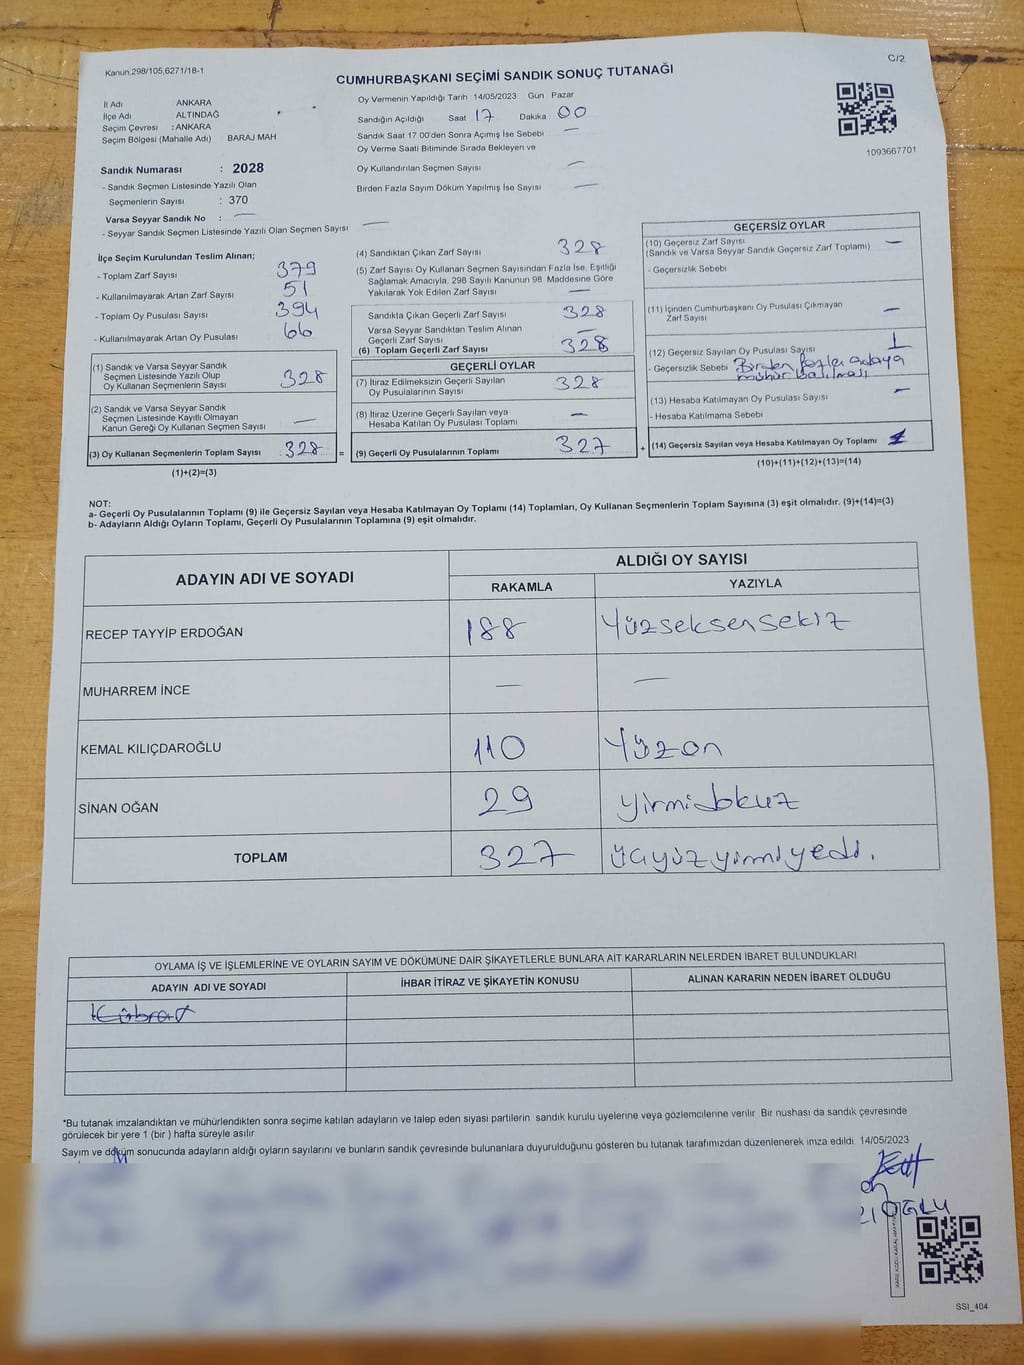 Kanun,298/105,6271/18-1
C/2
CUMHURBAŞKANI SEÇİMİ SANDIK SONUÇ TUTANAĞI
İl Adı ANKARA
İlçe Adı ALTINDAĞ
Seçim Çevresi : ANKARA
Seçim Bölgesi (Mahalle Adı) BARAJ MAH
Sandık Numarası : 2028
- Sandık Seçmen Listesinde Yazılı Olan
Seçmenlerin Sayısı : 370
Varsa Seyyar Sandık No : —
- Seyyar Sandık Seçmen Listesinde Yazılı Olan Seçmen Sayısı —
Oy Vermenin Yapıldığı Tarih 14/05/2023 Gün Pazar
Sandığın Açıldığı Saat 17 Dakika 00
Sandık Saat 17.00'den Sonra Açımış İse Sebebi —
Oy Verme Saati Bitiminde Sırada Bekleyen ve
Oy Kullandırılan Seçmen Sayısı —
Birden Fazla Sayım Döküm Yapılmış İse Sayısı —
1093667701
İlçe Seçim Kurulundan Teslim Alınan;
- Toplam Zarf Sayısı 379
- Kullanılmayarak Artan Zarf Sayısı 51
- Toplam Oy Pusulası Sayısı 394
- Kullanılmayarak Artan Oy Pusulası 66
(1) Sandık ve Varsa Seyyar Sandık
Seçmen Listesinde Yazılı Olup
Oy Kullanan Seçmenlerin Sayısı 328
(2) Sandık ve Varsa Seyyar Sandık
Seçmen Listesinde Kayıtlı Olmayan
Kanun Gereği Oy Kullanan Seçmen Sayısı —
(3) Oy Kullanan Seçmenlerin Toplam Sayısı 328 =
(1)+(2)=(3)
(4) Sandıktan Çıkan Zarf Sayısı 328
(5) Zarf Sayısı Oy Kullanan Seçmen Sayısından Fazla İse, Eşitliği
Sağlamak Amacıyla, 298 Sayılı Kanunun 98. Maddesine Göre
Yakılarak Yok Edilen Zarf Sayısı —
Sandıkla Çıkan Geçerli Zarf Sayısı 328
Varsa Seyyar Sandıktan Teslim Alınan
Geçerli Zarf Sayısı —
(6) Toplam Geçerli Zarf Sayısı 328
GEÇERLİ OYLAR
(7) İtiraz Edilmeksizin Geçerli Sayılan
Oy Pusulalarının Sayısı 328
(8) İtiraz Üzerine Geçerli Sayılan veya
Hesaba Katılan Oy Pusulası Toplamı —
(9) Geçerli Oy Pusulalarının Toplamı 327 +
GEÇERSİZ OYLAR
(10) Geçersiz Zarf Sayısı —
(Sandık ve Varsa Seyyar Sandık Geçersiz Zarf Toplamı)
- Geçersizlik Sebebi
(11) İçinden Cumhurbaşkanı Oy Pusulası Çıkmayan
Zarf Sayısı —
(12) Geçersiz Sayılan Oy Pusulası Sayısı 1
- Geçersizlik Sebebi Birden fazla adaya
mühür basılması
(13) Hesaba Katılmayan Oy Pusulası Sayısı —
- Hesaba Katılmama Sebebi
(14) Geçersiz Sayılan veya Hesaba Katılmayan Oy Toplamı 1
(10)+(11)+(12)+(13)=(14)
NOT:
a- Geçerli Oy Pusulalarının Toplamı (9) ile Geçersiz Sayılan veya Hesaba Katılmayan Oy Toplamı (14) Toplamları, Oy Kullanan Seçmenlerin Toplam Sayısına (3) eşit olmalıdır. (9)+(14)=(3)
b- Adayların Aldığı Oyların Toplamı, Geçerli Oy Pusulalarının Toplamına (9) eşit olmalıdır.
ADAYIN ADI VE SOYADI
ALDIĞI OY SAYISI
RAKAMLA YAZIYLA
RECEP TAYYİP ERDOĞAN 188 Yüzseksensekiz
MUHARREM İNCE — —
KEMAL KILIÇDAROĞLU 110 Yüzon
SİNAN OĞAN 29 yirmidokuz
TOPLAM 327 üçyüzyirmiyedi.
OYLAMA İŞ VE İŞLEMLERİNE VE OYLARIN SAYIM VE DÖKÜMÜNE DAİR ŞİKAYETLERLE BUNLARA AİT KARARLARIN NELERDEN İBARET BULUNDUKLARI
ADAYIN ADI VE SOYADI İHBAR İTİRAZ VE ŞİKAYETİN KONUSU ALINAN KARARIN NEDEN İBARET OLDUĞU
*Bu tutanak imzalandıktan ve mühürlendikten sonra seçime katılan adayların ve talep eden siyasi partilerin sandık kurulu üyelerine veya gözlemcilerine verilir. Bir nushası da sandık çevresinde
görülecek bir yere 1 (bir) hafta süreyle asılır
Sayım ve döküm sonucunda adayların aldığı oyların sayılarını ve bunların sandık çevresinde bulunanlara duyurulduğunu gösteren bu tutanak tarafımızdan düzenlenerek imza edildi. 14/05/2023
SSI_404